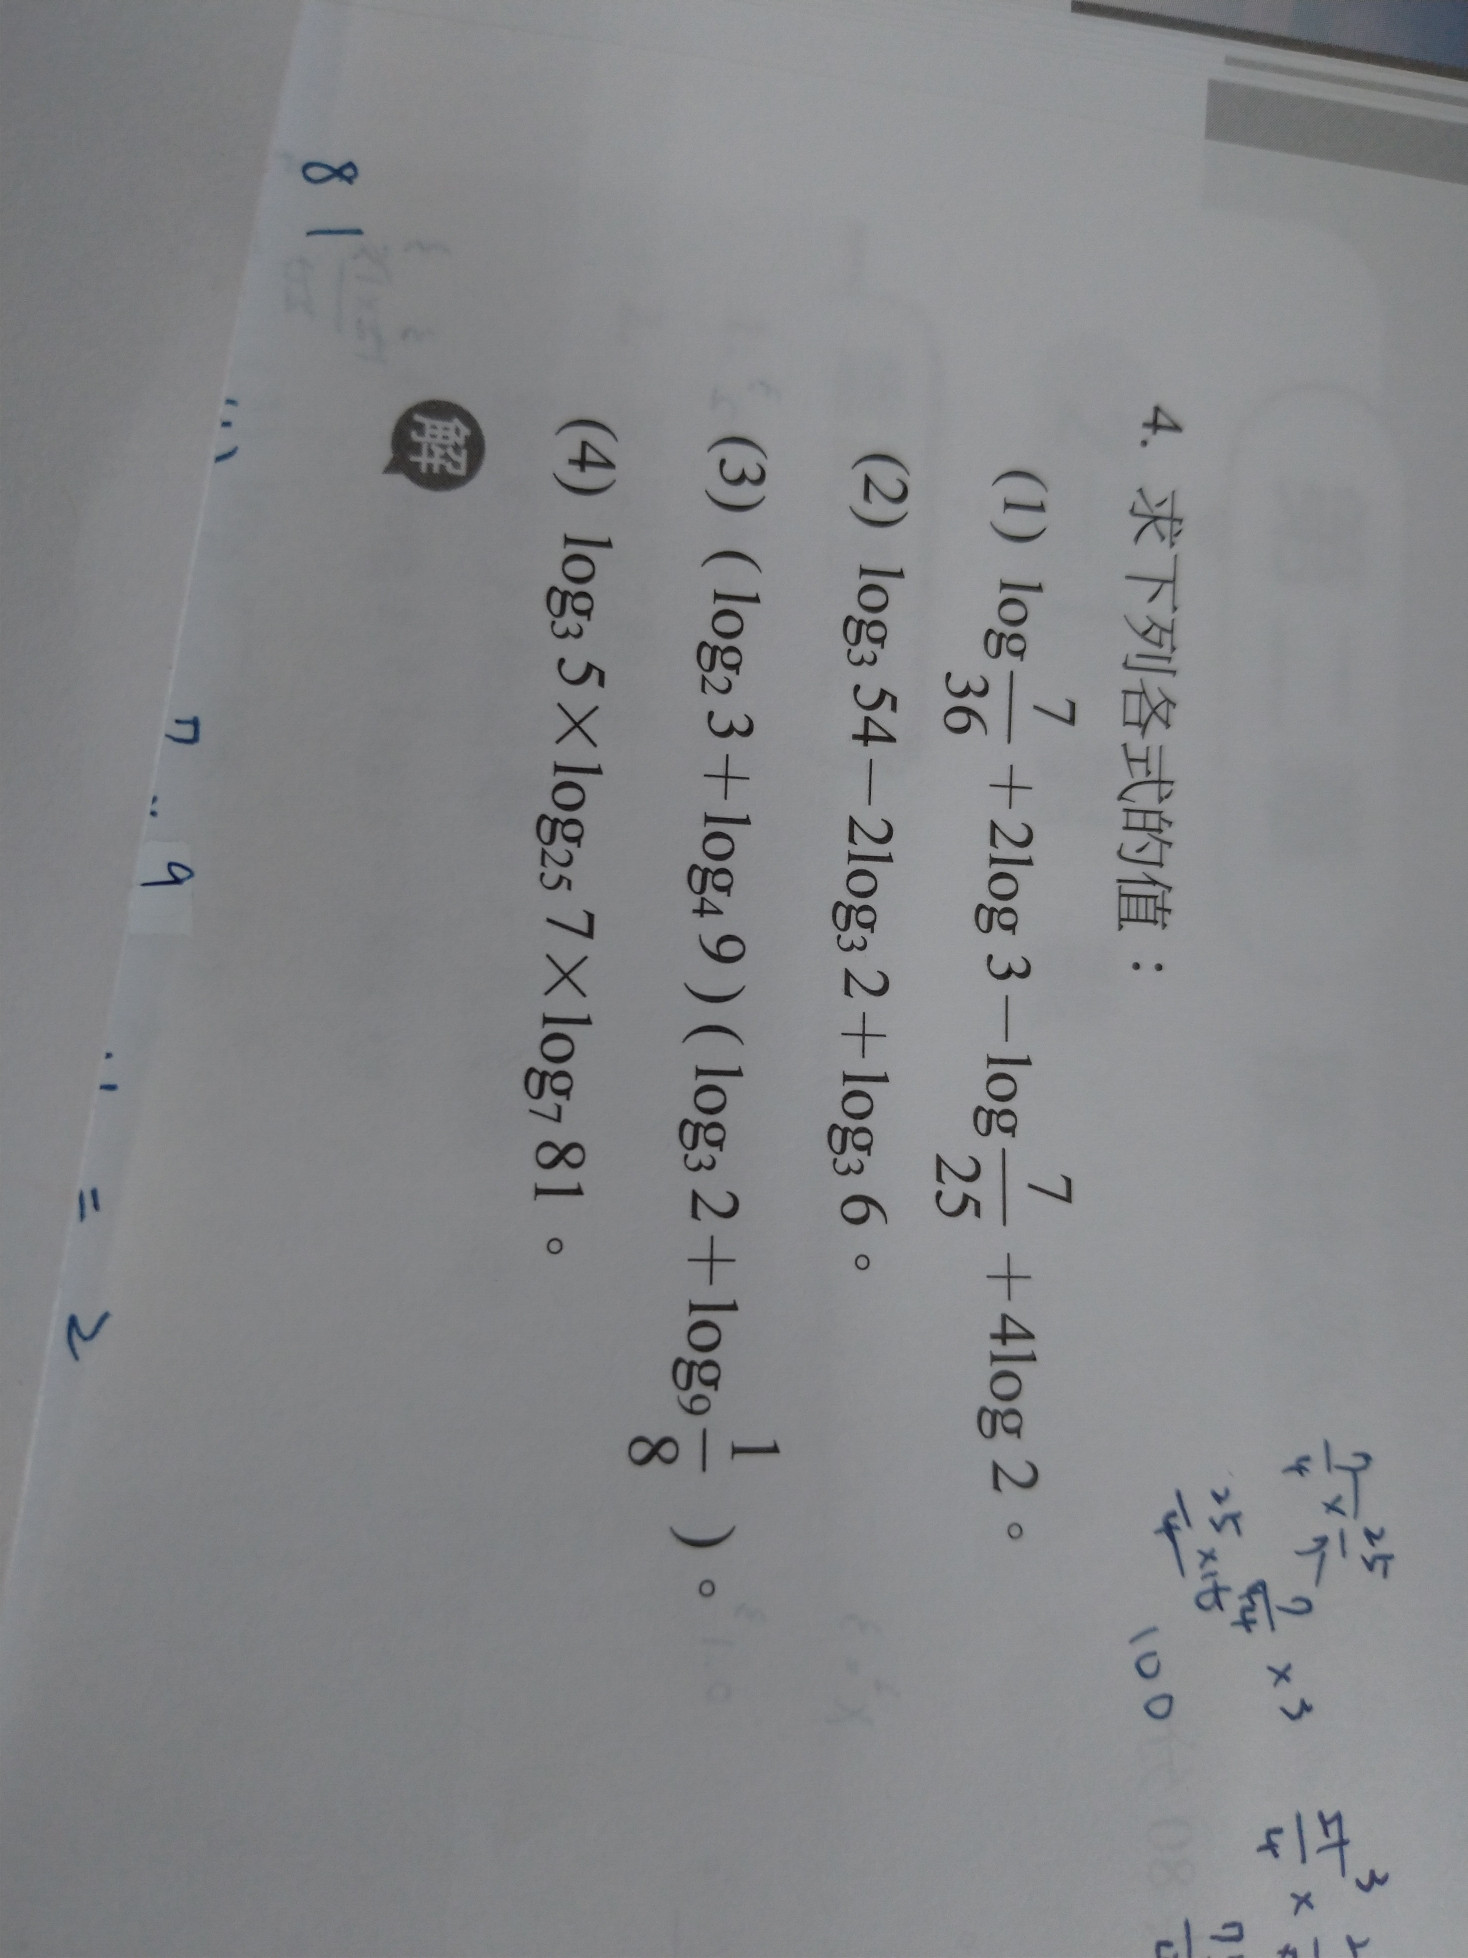 4. 求下列各式的值：
(1) log 7/36 + 2log 3 − log 7/25 + 4log 2。
(2) log₃ 54 − 2log₃ 2 + log₃ 6。
(3) ( log₂ 3 + log₄ 9 ) ( log₃ 2 + log₉ 1/8 )。
(4) log₃ 5 × log₂₅ 7 × log₇ 81。
解
81
9
= 2
25
× 3
100